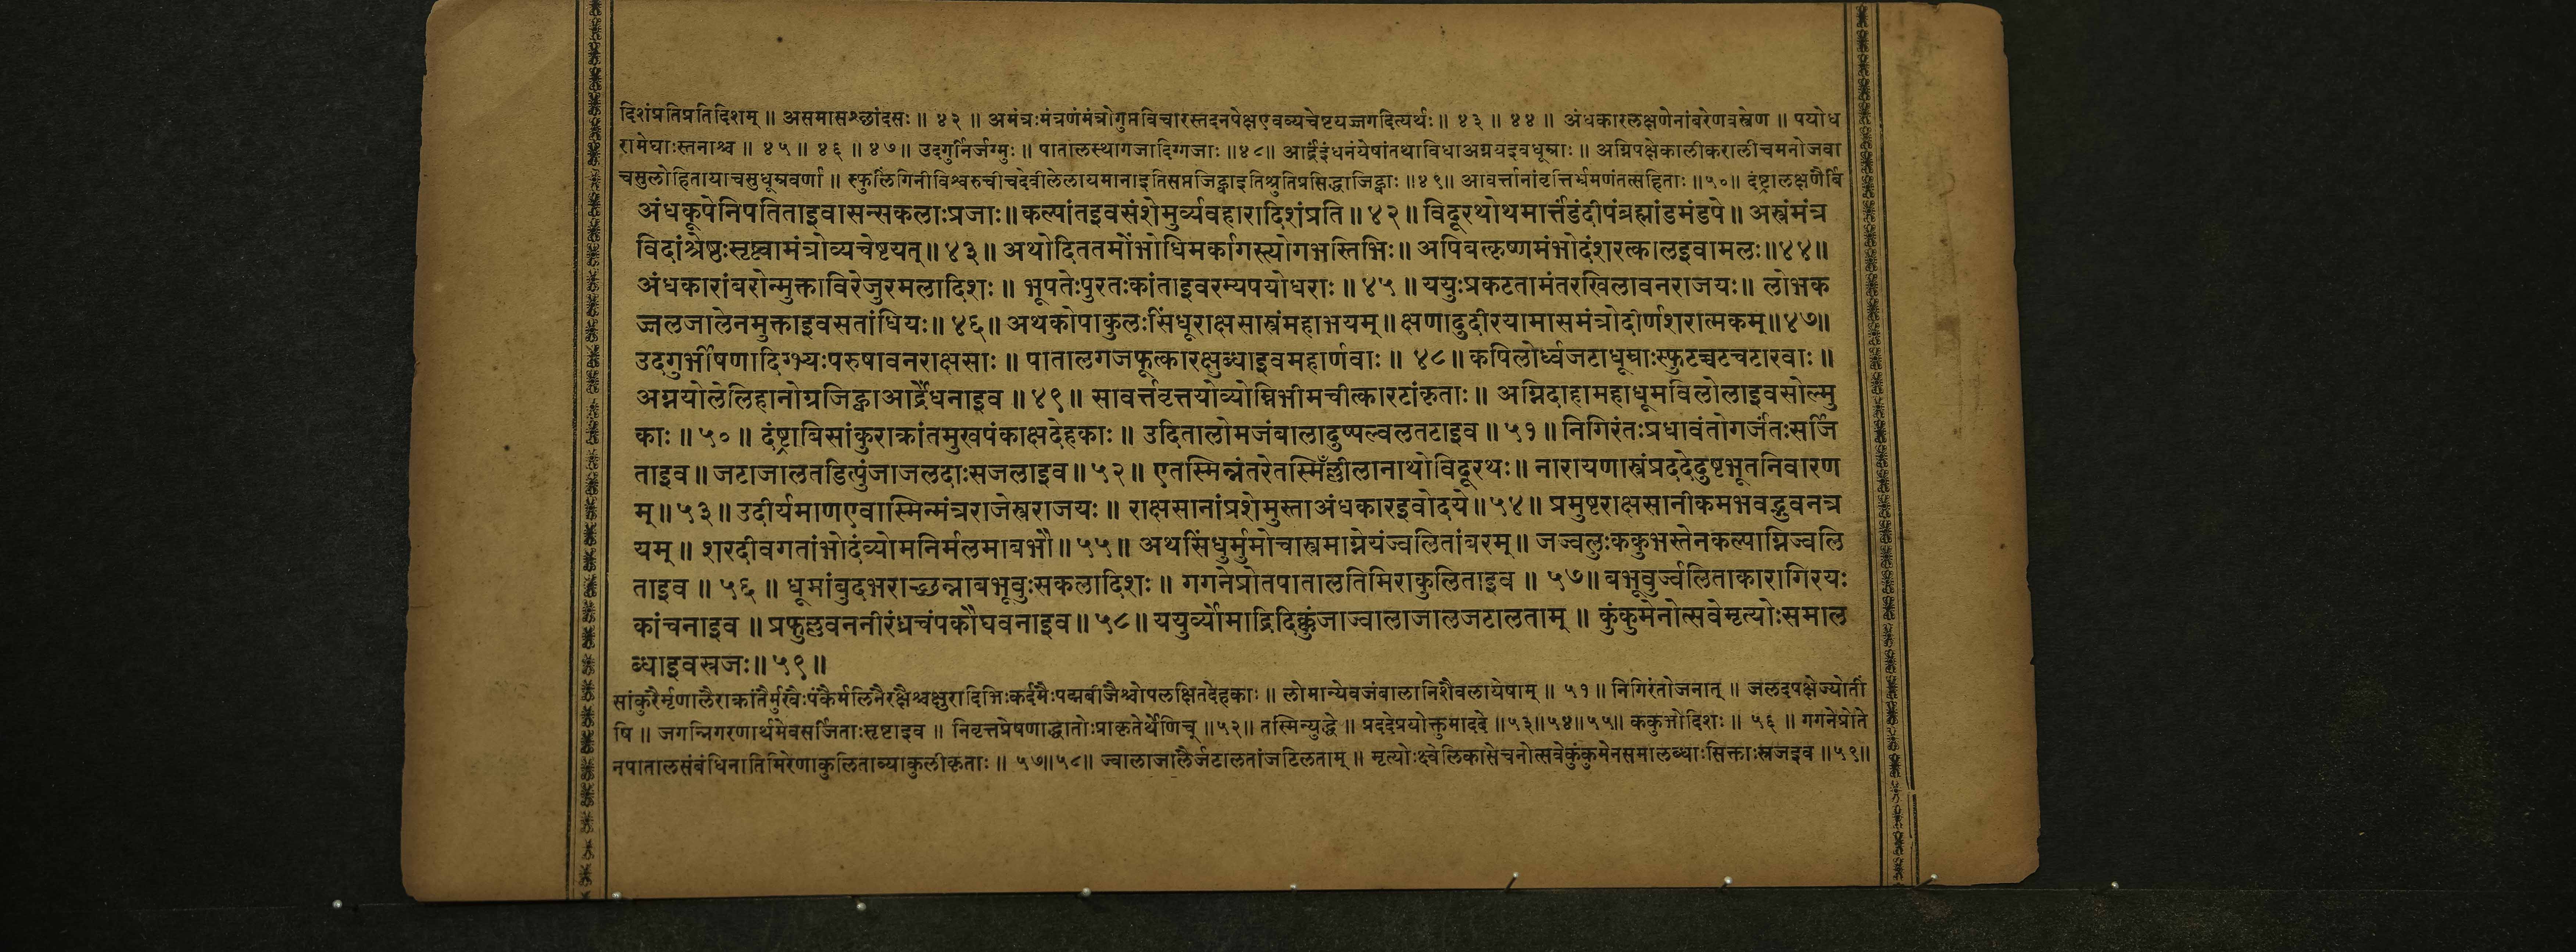 दिशंप्रतिप्रतिदिशम् ॥ असमासश्छांदसः ॥ ४२ ॥ अमंत्रःमंत्रणंमंत्रोगुप्तविचारस्तदनपेक्षएवव्यचेष्टयज्जगदित्यर्थः ॥ ४३ ॥ ४४ ॥ अंधकारलक्षणेनांबरेणवस्त्रेण ॥ पयोध
रामेघाःस्तनाश्च ॥ ४५ ॥ ४६ ॥ ४७ ॥ उदगुर्निर्जग्मुः ॥ पातालस्थागजादिग्गजाः ॥४८॥ आर्द्रइंधनंयेषांतथाविधाअग्नयइवधूम्राः ॥ अग्निपक्षेकालीकरालीचमनोजवा
चसुलोहितायाचसुधूम्रवर्णा ॥ स्फुलिंगिनीविश्वरुचीचदेवीलेलायमानाइतिसप्तजिह्वाइतिश्रुतिप्रसिद्धाजिह्वाः ॥४९॥ आवर्त्तानांवृत्तिर्भ्रमणंतत्सहिताः ॥५०॥ दंष्ट्रालक्षणैर्बि
अंधकूपेनिपतिताइवासन्सकलाःप्रजाः ॥ कल्पांतइवसंशेमुर्व्यवहारादिशंप्रति ॥ ४२ ॥ विदूरथोथमार्त्तंडंदीपंब्रह्मांडमंडपे ॥ अस्त्रंमंत्र
विदांश्रेष्ठःसृष्ट्वामंत्रोव्यचेष्टयत् ॥ ४३ ॥ अथोदिततमोंभोधिमर्कागस्त्योगभस्तिभिः ॥ अपिबत्कृष्णमंभोदंशरत्कालइवामलः ॥४४॥
अंधकारांबरोन्मुक्ताविरेजुरमलादिशः ॥ भूपतेःपुरतःकांताइवरम्यपयोधराः ॥ ४५ ॥ ययुःप्रकटतामंतरखिलावनराजयः ॥ लोभक
ज्जलजालेनमुक्ताइवसतांधियः ॥ ४६ ॥ अथकोपाकुलःसिंधूराक्षसास्त्रंमहाभयम् ॥ क्षणादुदीरयामासमंत्रोदीर्णशरात्मकम् ॥४७॥
उदगुर्भीषणादिग्भ्यःपरुषावनराक्षसाः ॥ पातालगजफूत्कारक्षुब्धाइवमहार्णवाः ॥ ४८ ॥ कपिलोर्ध्वजटाधूम्राःस्फुटच्चटचटारवाः ॥
अग्नयोलेलिहानोग्रजिह्वाआर्द्रेंधनाइव ॥ ४९ ॥ सावर्त्तवृत्तयोव्योम्निभीमचीत्कारटांकृताः ॥ अग्निदाहामहाधूमविलोलाइवसोल्मु
काः ॥ ५० ॥ दंष्ट्राबिसांकुराक्रांतमुखपंकाक्षदेहकाः ॥ उदितालोमजंबालादुष्पल्वलतटाइव ॥ ५१ ॥ निगिरंतःप्रधावंतोगर्जंतःसर्जि
ताइव ॥ जटाजालतडित्पुंजाजलदाःसजलाइव ॥ ५२ ॥ एतस्मिन्नंतरेतस्मिँल्लीलानाथोविदूरथः ॥ नारायणास्त्रंप्रददेदुष्टभूतनिवारण
म् ॥ ५३ ॥ उदीर्यमाणएवास्मिन्मंत्रराजेस्त्रराजयः ॥ राक्षसानांप्रशेमुस्ताअंधकारइवोदये ॥ ५४ ॥ प्रमुष्टराक्षसानीकमभवद्भुवनत्र
यम् ॥ शरदीवगतांभोदंव्योमनिर्मलमाबभौ ॥ ५५ ॥ अथसिंधुर्मुमोचास्त्रमाग्नेयंज्वलितांबरम् ॥ जज्वलुःककुभस्तेनकल्पाग्निज्वलि
ताइव ॥ ५६ ॥ धूमांबुदभराच्छन्नाबभूवुःसकलादिशः ॥ गगनेप्रोतपातालतिमिराकुलिताइव ॥ ५७ ॥ बभूवुर्ज्वलिताकारागिरयः
कांचनाइव ॥ प्रफुल्लवननीरंध्रचंपकौघवनाइव ॥ ५८ ॥ ययुर्व्योमाद्रिदिक्कुंजाज्वालाजालजटालताम् ॥ कुंकुमेनोत्सवेमृत्योःसमाल
ब्धाइवस्रजः ॥ ५९ ॥
सांकुरैर्मृणालैराक्रांतैर्मुखैःपंकैर्मलिनैरक्षैश्चक्षुरादिभिःकर्दमैःपद्मबीजैश्चोपलक्षितदेहकाः ॥ लोमान्येवजंबालानिशैवलायेषाम् ॥ ५१ ॥ निगिरंतोजनात् ॥ जलदपक्षेज्योतीं
षि ॥ जगन्निगरणार्थमेवसर्जिताःसृष्टाइव ॥ निवृत्तप्रेषणाद्धातोःप्राकृतेर्थेणिच् ॥५२॥ तस्मिन्युद्धे ॥ प्रददेप्रयोक्तुमाददे ॥५३॥५४॥५५॥ ककुभोदिशः ॥ ५६ ॥ गगनेप्रोते
नपातालसंबंधिनातिमिरेणाकुलिताव्याकुलीकृताः ॥ ५७॥५८॥ ज्वालाजालैर्जटालतांजटिलताम् ॥ मृत्योःक्ष्वेलिकासेचनोत्सवेकुंकुमेनसमालब्धाःसिक्ताःस्रजइव ॥५९॥